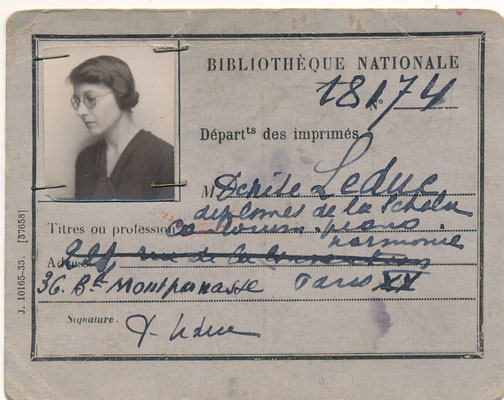 BIBLIOTHÈQUE NATIONALE
18174
Départts des imprimés
M Denise Leduc
Titres ou profession diplomes de la Schola
Cantorum. piano
harmonie
Adresse rue de la Convention
36. Bd Montparnasse Paris XV
Signature. D. Leduc
J. 10165-33. [37658]